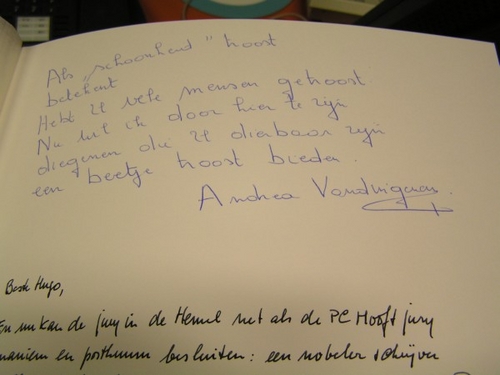 Als „schoonheid" troost
betekent
Hebt U vele mensen getroost
Nu wil ik door hier te zijn
diegenen die U dierbaar zijn
een beetje troost bieden.
Andrea
Beste Hugo,
En nu kan de jury in de Hemel net als de PC Hooft jury
unaniem en posthuum besluiten: een nobeler schrijver